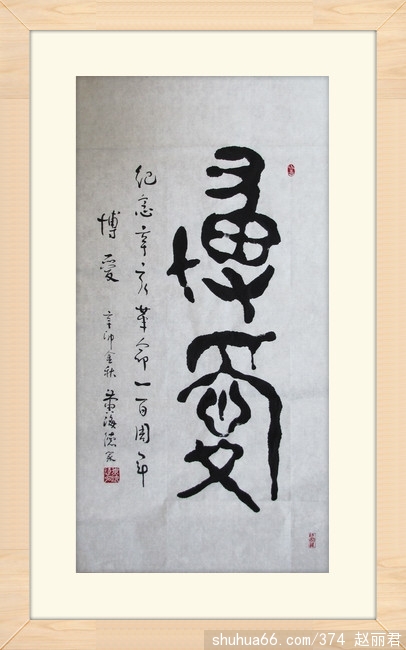 博愛
纪念辛亥革命一百周年
博愛
辛卯金秋
shuhua66.com/374 赵丽君